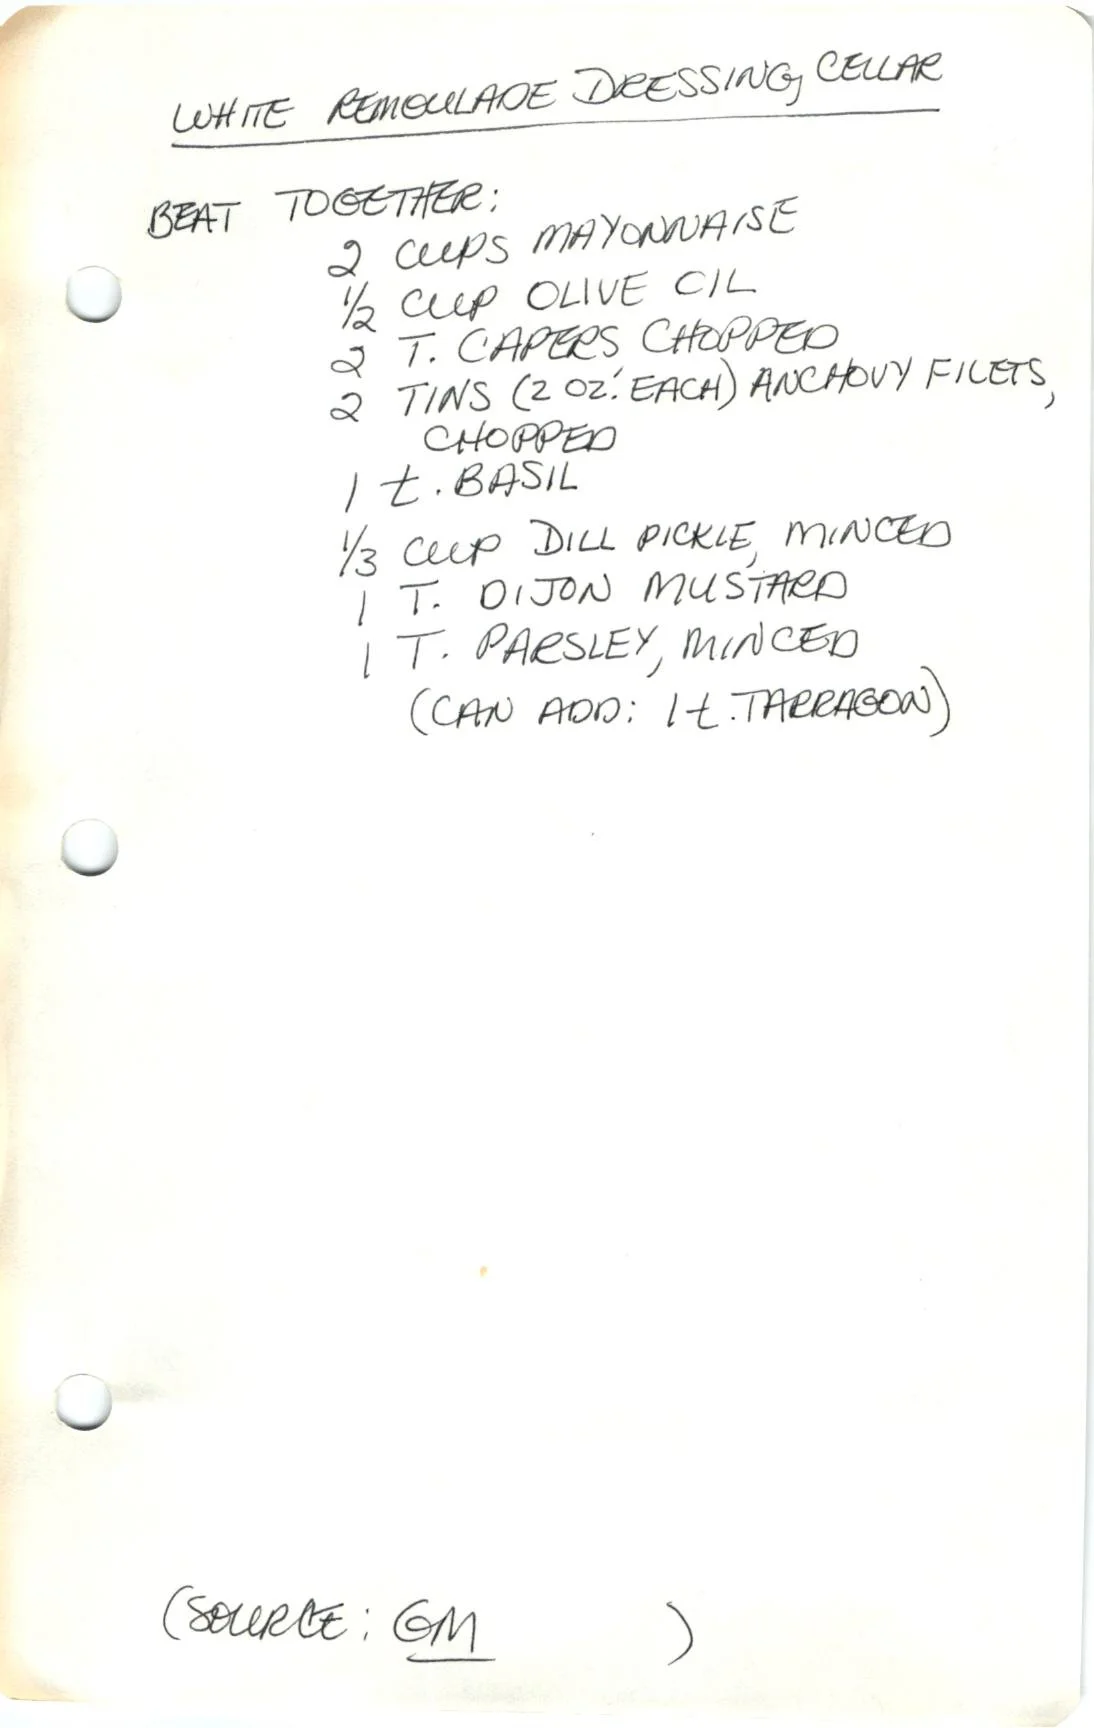 WHITE REMOULADE DRESSING, CELLAR
BEAT TOGETHER:
2 CUPS MAYONNAISE
1/2 CUP OLIVE OIL
2 T. CAPERS CHOPPED
2 TINS (2 OZ. EACH) ANCHOVY FILETS,
CHOPPED
1 t. BASIL
1/3 CUP DILL PICKLE, MINCED
1 T. DIJON MUSTARD
1 T. PARSLEY, MINCED
(CAN ADD: 1 t. TARRAGON)
(SOURCE: GM )